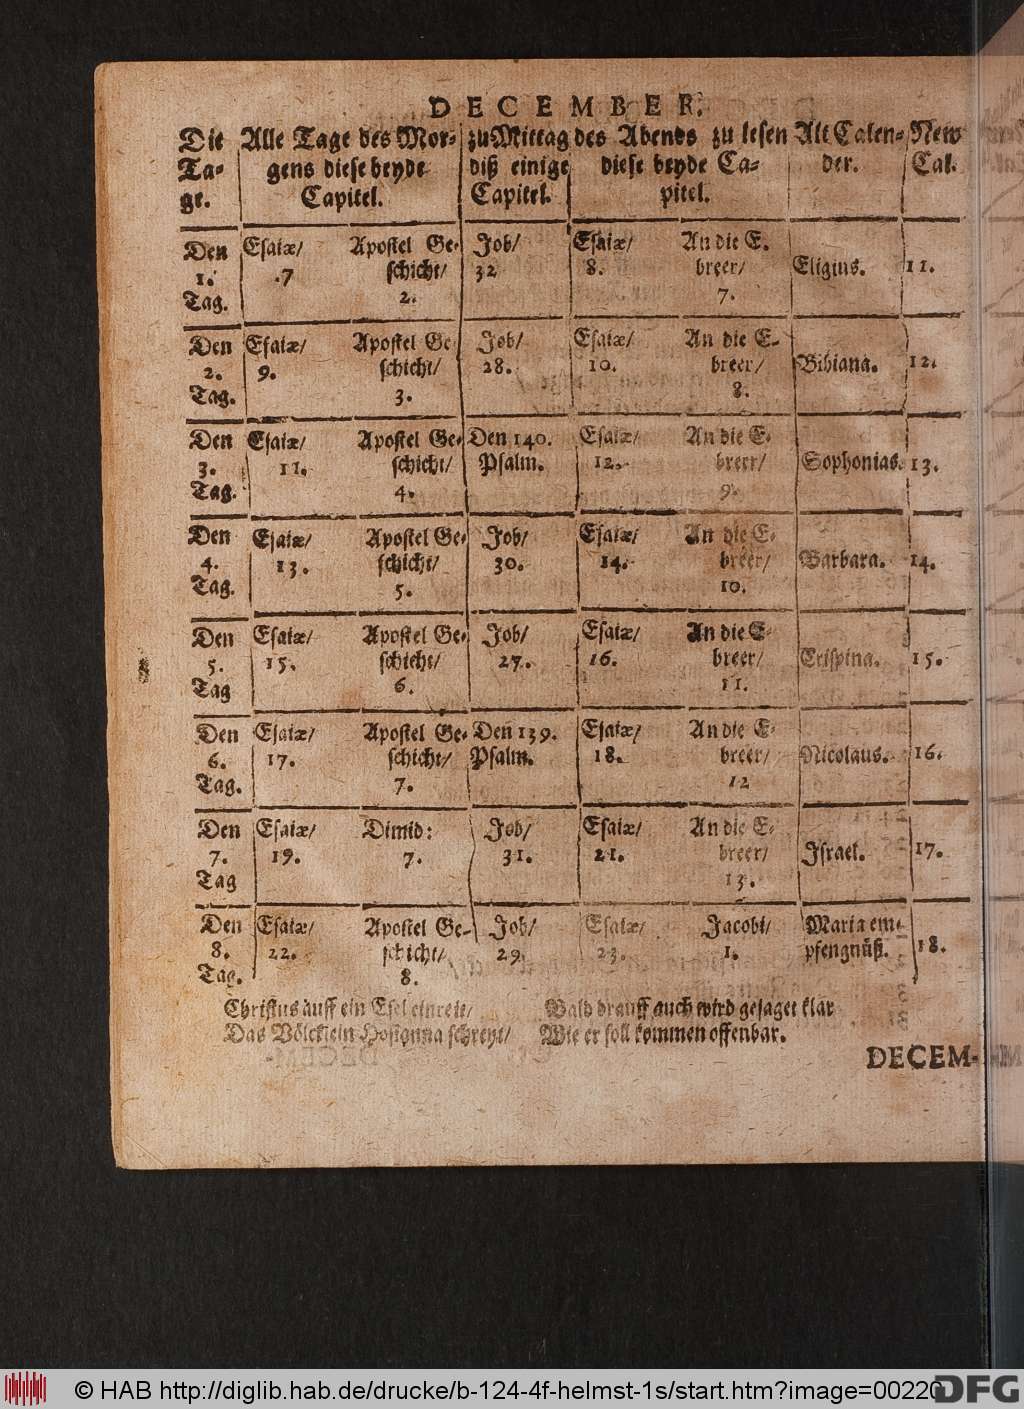 DECEMBER.
Die Alle Tage des Mor- zu Mittag des Abends zu lesen Alt Calen- New
Ta- gens diese beyde diß einige diese beyde Ca- der. Cal.
ge. Capitel. Capitel. pitel.
Den Esaiæ/ Apostel Ge- Job/ Esaiæ/ An die E.
1. .7 schicht/ 32 8. breer/ Eligius. 11.
Tag. 2. 7.
Den Esaiæ/ Apostel Ge Job/ Esaiæ/ An die E-
2. 9. schicht/ 28. 10. breer/ Bibiana. 12.
Tag. 3. 8.
Den Esaiæ/ Apostel Ge- Den 140. Esaiæ/ An die E-
3. 11. schicht/ Psalm. 12. breer/ Sophonias. 13.
Tag. 4. 9.
Den Esaiæ/ Apostel Ge- Job/ Esaiæ/ An die E-
4. 13. schicht/ 30. 14. breer/ Barbara. 14.
Tag. 5. 10.
Den Esaiæ/ Apostel Ge- Job/ Esaiæ/ An die E-
5. 15. schicht/ 27. 16. breer/ Crispina. 15.
Tag 6. 11.
Den Esaiæ/ Apostel Ge- Den 139. Esaiæ/ An die E-
6. 17. schicht/ Psalm. 18. breer/ Nicolaus. 16.
Tag. 7. 12
Den Esaiæ/ Dimid: Job/ Esaiæ/ An die E-
7. 19. 7. 31. 21. breer/ Israel. 17.
Tag 13.
Den Esaiæ/ Apostel Ge- Job/ Esaiæ/ Jacobi/ Mariæ em-
8. 22. schicht/ 29. 23. 1. pfengnüß. 18.
Tag. 8.
Christus auff ein Esel einreit/ Bald drauff auch wird gesaget klar
Das Völcklein Hosianna schreyt/ Wie er soll kommen offenbar.
DECEM-
© HAB http://diglib.hab.de/drucke/b-124-4f-helmst-1s/start.htm?image=00220
DFG